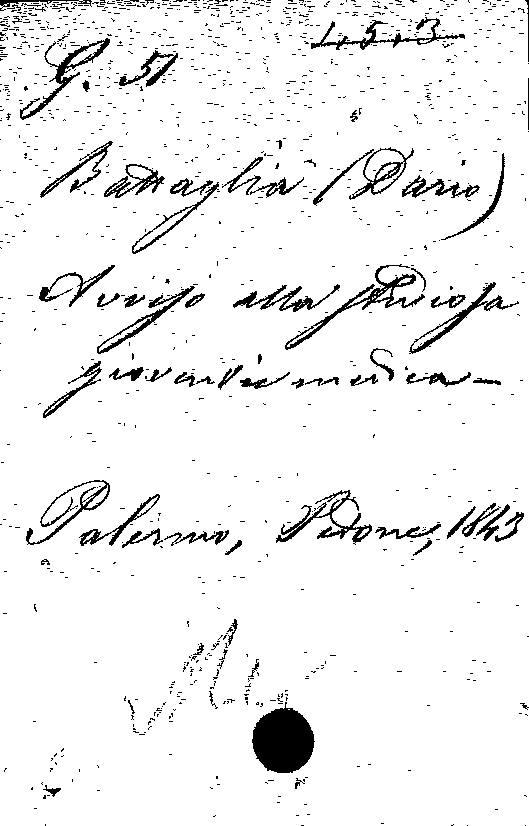 1.5.3
G. 51
Battaglia (Dario)
Avviso alla studiosa
gioventù medica -
Palermo, Pedone, 1843